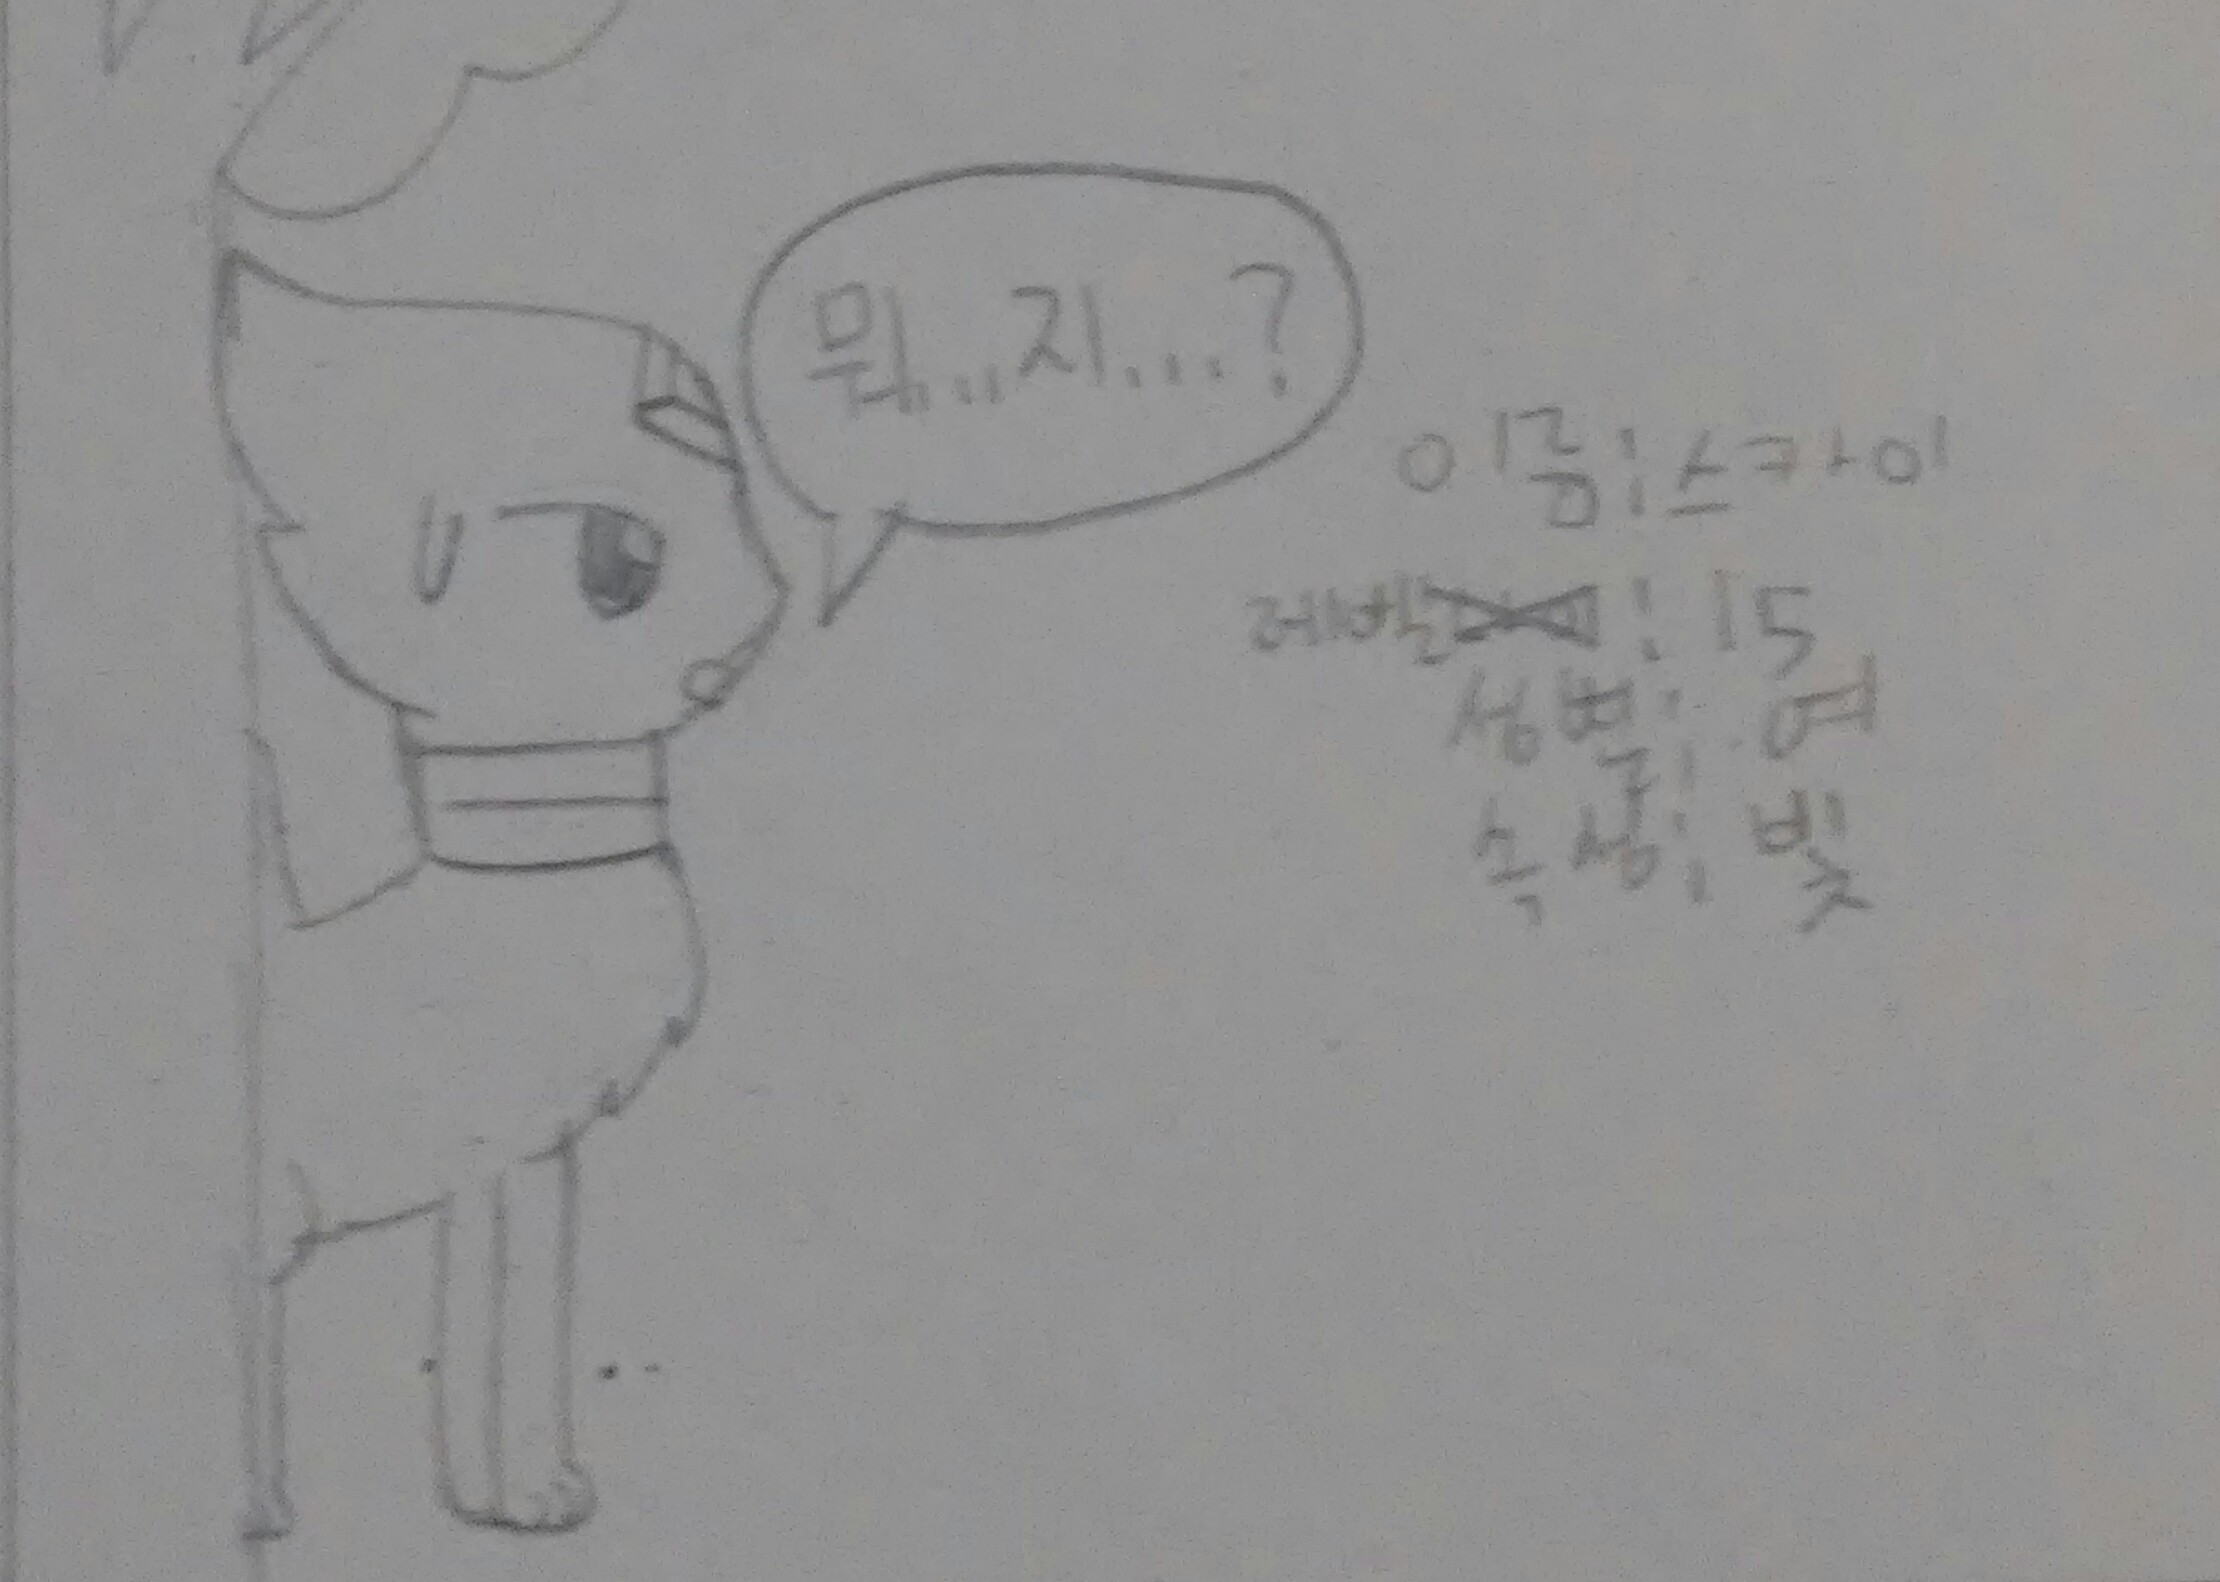 뭐...지...?
이름:스카이
레벨:15
성별:여
속성:빛